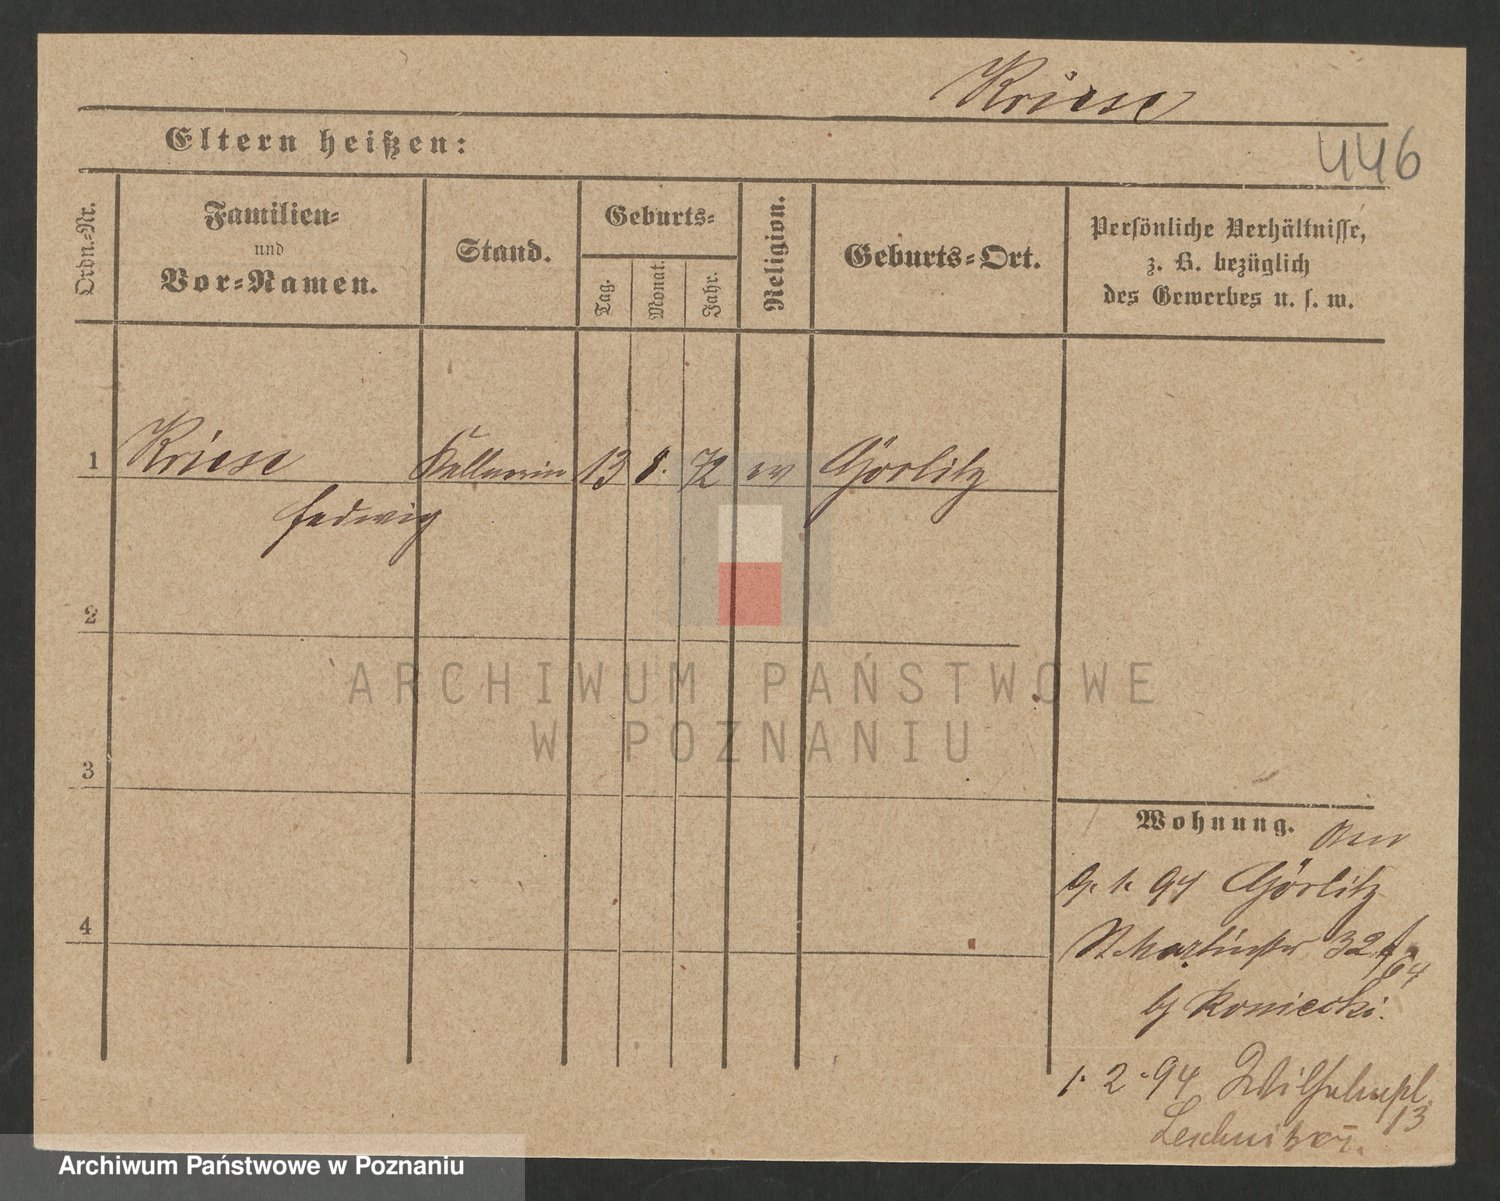 Kriese
Eltern heißen:
446
Ordn.-Nr.
Familien-
und
Vor-Namen.
Stand.
Geburts-
Tag.
Monat.
Jahr.
Religion.
Geburts-Ort.
Persönliche Verhältnisse,
z. B. bezüglich
des Gewerbes u. s. w.
1
Kriese
Kellnerin
13
8.
72
ev
Görlitz
Hedwig
2
ARCHIWUM PAŃSTWOWE
W POZNANIU
3
Wohnung.
9. 1. 94 Görlitz
St Martinstr 32
64
by Koniecki.
4
1. 2. 94 Wilhelmspl.
13
Archiwum Państwowe w Poznaniu